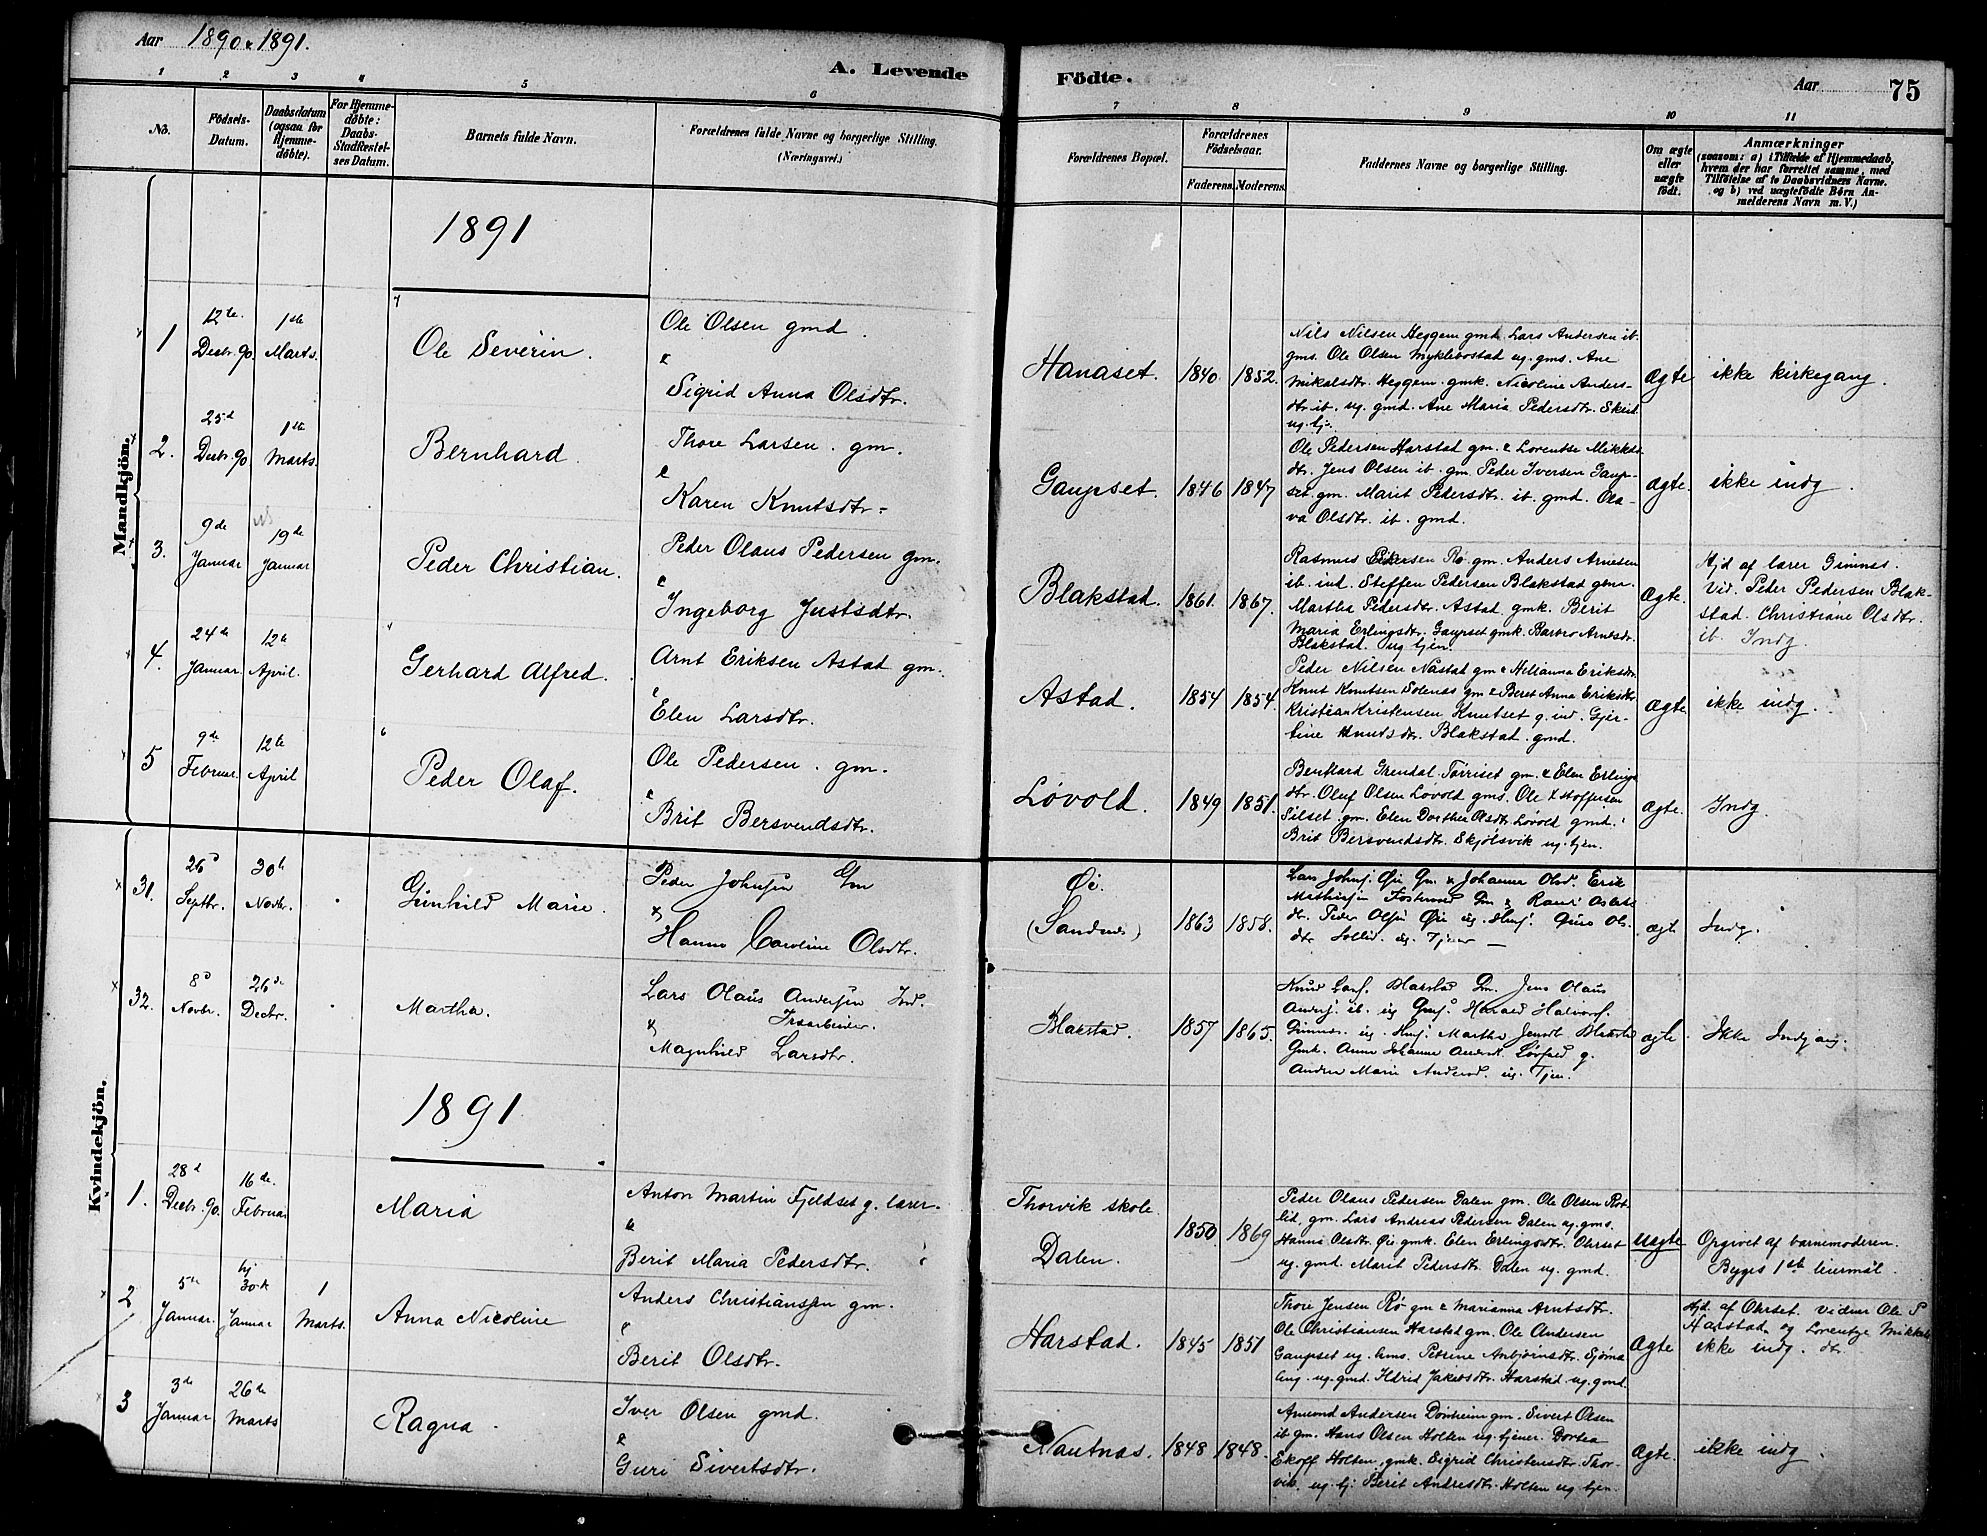 Aar 1890 & 1891.
A. Levende Födte.
Aar 75
1 2 3 4 5 6 7 8 9 10 11
No.
Födsels-
Datum.
Daabsdatum
(ogsaa for
Hjemme-
døbte).
For Hjemme-
døbte:
Daabs-
Stadfæstel-
ses Datum.
Barnets fulde Navn.
Forældrenes fulde Navne og borgerlige Stilling.
(Næringsvei.)
Forældrenes Bopæl.
Forældrenes
Födselsaar.
Faderens. Moderens.
Faddernes Navne og borgerlige Stilling.
Om ægte
eller
uægte
født.
Anmærkninger
(saasom: a) i Tilfælde af Hjemmedaab,
hvem der har forrettet samme, med
Tilføielse af to Daabsvidners Navne.
og b) ved uægtefødte Børn An-
melderens Navn m. V.)
Mandkjön.
1891
1
12te
Decbr. 90.
1ste
Marts.
Ole Severin.
Ole Olsen gmd.
&
Sigrid Anna Olsdtr.
Hanaset. 1840. 1852.
Nils Nilsen Heggem gmd. Lars Andersen ib.
gms. Ole Olsen Myklebostad ug. gms. Ane
Mikalsdtr. Heggem. gmk. Nicoline Anders-
dtr. ib. ug. gmd. Ane Maria Pedersdtr. Skeid
ug. tj.
Ægte
ikke kirkegang.
2.
25d
Decbr. 90
1ste
Marts.
Bernhard
Thore Larsen. gm.
&
Karen Knutsdtr.
Gaupset. 1846 1847
Ole Pedersen Harstad gm. & Lorentse Mikkels-
dtr. Jens Olsen ib. gm. Peder Iversen Gaup-
set. gm. Marit Pedersdtr. ib. gmd. Ola-
va Olsdtr. ib. gmd.
ægte.
ikke indg.
3.
9de
Januar
19de
Januar
Peder Christian.
Peder Olaus Pedersen gm.
&
Ingeborg Justsdtr.
Blakstad. 1861. 1867.
Rasmus Pedersen Rø gm. Anders Arnesen
ib. ind. Steffen Pedersen Blakstad gms.
Martha Pedersdtr. Astad gmk. Berit
Maria Erlingsdtr. Gaupset gmk. Barbro Arnesdtr.
Blakstad. ug tjen.
Ægte.
Hjd af lærer Gimnes.
Vid. Peder Pedersen Blak-
stad. Christiane Olsdtr.
ib. Indg
4.
24de
Januar.
12te
April.
Gerhard Alfred.
Arnt Eriksen Astad gm.
&
Elen Larsdtr.
Astad. 1854 1854.
Peder Nilsen Nastad gm & Helianna Eriksdtr.
Knut Knutsen Solenes gm & Beret Anna Eriksdtr
Kristian Kristensen Knutset g. ind. Gjer-
tine Knutsdtr. Blakstad. gmd.
ægte
ikke indg.
5
9de
Februar.
12te
April
Peder Olaf.
Ole Pedersen. gm.
&
Brit Bersvendsdtr.
Løvold. 1849 1851.
Benhard Grendal. Tørriset gm. & Elen Erlings
dtr. Oluf Olsen Lovold gms. Ole Kstoffersen
Silset. gm. Elen Dorthea Olsdtr Løvold gmd.
Brit Bersvendsdtr. Skjølsvik ug. tjen.
ægte.
Indg.
Kvindekjön.
31.
26d
Septbr.
30te
Novbr.
Gunhild Marie.
Peder Johnsen Gm
&
Hanna Caroline Olsdtr.
Øi.
(Sandnes) 1863 1858.
Lars Johns. Øie Gm. & Johanna Olsd. Erik
ægt.
Indg.
32.
8d
Novbr.
26de
Decbr.
Martha.
Lars Olaus Andersen Ind.
&
Magnhild Larsdtr.
Blakstad. 1857 1865.
Gmk. Anne Johanne
Andrea Marie Andersd. ug. Tjen.
ægte.
Ikke Indgang.
1891
1.
28d
Decbr. 90.
16de
Februar
Maria
Anton Martin Fjeldset g. lærer.
&
Berit Maria Pedersdtr.
Thorvik skole.
Dalen. 1850. 1869
Peder Olaus Pedersen Dalen gm. Ole Olsen Rot-
lid, gm. Lars Andreas Pedersen Dalen ug. gms.
Hanna Olsdtr. Øie gmk. Elen Erlingsdtr. Ohrset
ug. gmd. Marit Pedersdtr. Dalen ug. gmd.
Uægte
Opgivet af barnemoderen.
Begges 1ste leiermål.
2
5te
Januar.
hj
30te
Januar
1
Marts.
Anna Nicoline
Anders Christiansen gm.
&
Berit Olsdtr.
Harstad. 1845 1851
Thore Jensen Rø gm & Marianna Arntsdtr.
Ole Christiansen Harstad gm. Ole Andersen
Gaupset ug. gms. Petrine Anbjørnsdtr. Sjøma
ling. ug. gmd. Ildrid Jakobsdtr. Harstad ug. gmd.
Ægte
Hjd. af Ohrset. Vidner Ole P
Harstad og Lorentse Mikkels
ikke indg. dtr.
3
3de
Januar.
26de
Marts
Ragna.
Iver Olsen gmd.
&
Guri Sivertsdtr.
Nautnæs. 1848 1848.
Amund Andersen Dønheim gm. Sivert Olsen
ib gm. Hans Olsen Holten ug. tjener. Dortea
Ekoff Holten, gmk. Sigrid Christensdtr. Thor-
vik. ug. tj. Berit Andersdtr. Holten ug. tjen.
Ægte.
ikke indg.